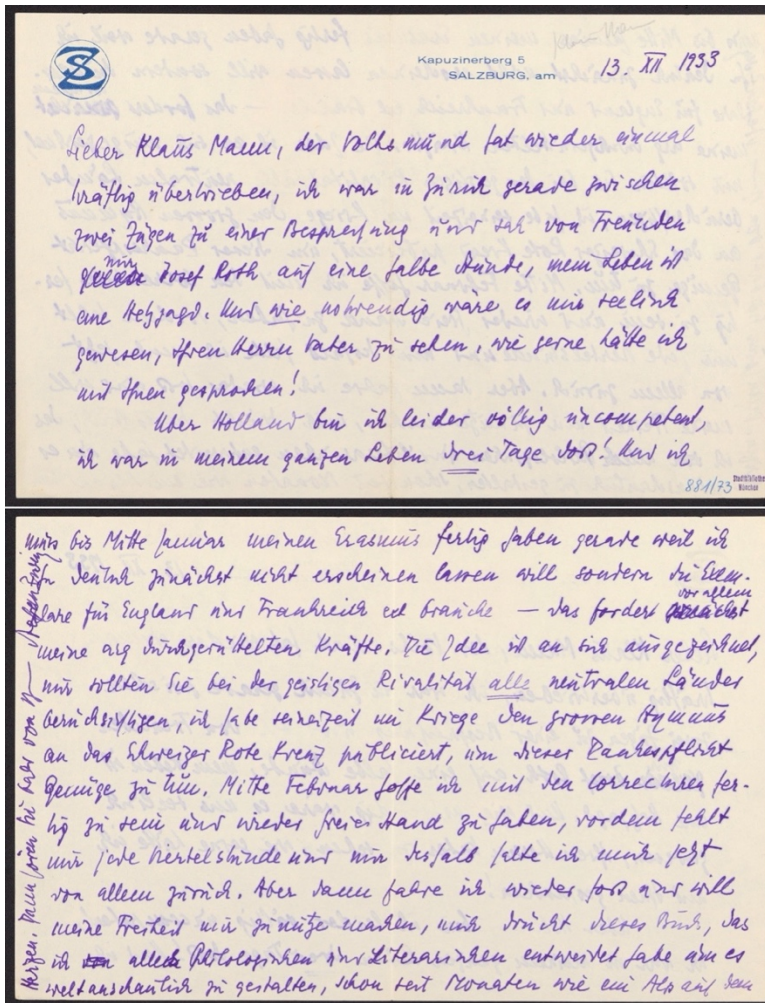 SZ
Kapuzinerberg 5
SALZBURG, am 13. XII 1933
Lieber Klaus Mann, der Volksmund hat wieder einmal
kräftig übertrieben, ich war in Zürich gerade zwischen
zwei Zügen zu einer Besprechung und sah von Freunden
nur Josef Roth auf eine halbe Stunde, mein Leben ist
eine Hetzjagd. Und wie notwendig wäre es mir seelisch
gewesen, Ihren Herrn Vater zu sehen, wie gerne hätte ich
mit Ihnen gesprochen!
Über Holland bin ich leider völlig incompetent,
ich war in meinem ganzen Leben drei Tage dort! Und ich
881/73 Stadtbibliothek
München
muss bis Mitte Januar meinen Erasmus fertig haben gerade weil ich
ihn deutsch zunächst nicht erscheinen lassen will sondern die Exem-
plare für England und Frankreich etc brauche — das fordert vor allem
meine arg durchgerüttelten Kräfte. Die Idee ist an sich ausgezeichnet,
nur sollten Sie bei der geistigen Rivalität alle neutralen Länder
berücksichtigen, ich habe seinerzeit im Kriege den grossen Hymnus
an das Schweizer Rote Kreuz publiciert, um dieser Dankespflicht
Genüge zu tun. Mitte Februar hoffe ich mit den Correcturen fer-
tig zu sein und wieder freie Hand zu haben, vordem fehlt
mir jede Viertelstunde und nur deshalb halte ich mich jetzt
von allem zurück. Aber dann fahre ich wieder fort und will
meine Freiheit mir zunütze machen, mich drückt dieses Buch, das
ich allem Philologischen und Literarischen entweidet habe um es
weltanschaulich zu gestalten, schon seit Monaten wie ein Alp auf dem
Herzen. Dann hören Sie bald von Ihrem Stefan Zweig